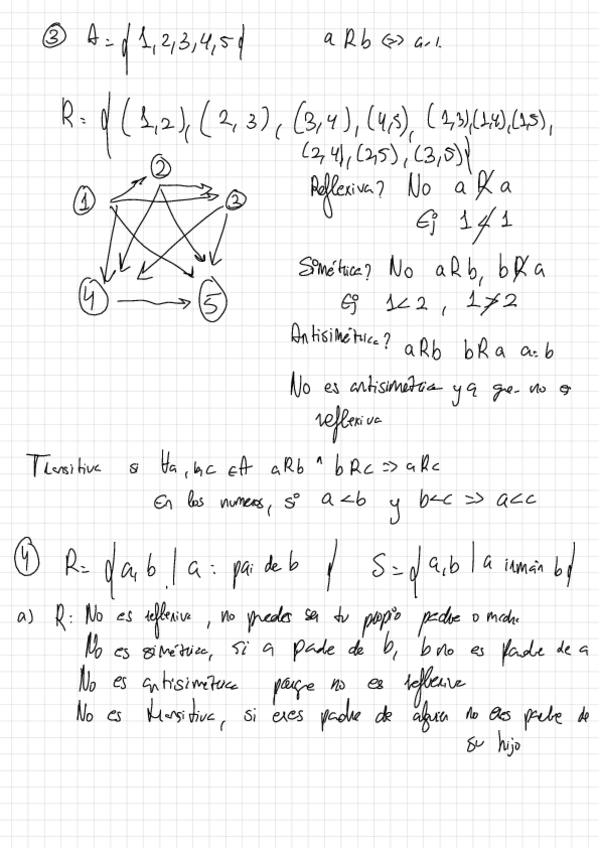 ③ A = { 1,2,3,4,5 } a R b ⇔ a<b
R = { (1,2), (2,3), (3,4), (4,5), (1,3),(1,4),(1,5),
(2,4), (2,5), (3,5) }
② ① ③
④ ⑤
Reflexiva? No a R̸ a
Ej 1 ≮ 1
Simétrica? No aRb, b R̸ a
Ej 1<2 , 1 ≯ 2
Antisimétrica? aRb bRa a=b
No es antisimetrica ya que no es
reflexiva
Transitiva si ∀a,b,c ∈ A aRb ^ bRc => aRc
En los numeros, si a<b y b<c => a<c
④ R = { a,b | a : pai de b } S = { a,b | a irmán b }
a) R: No es reflexiva, no puedes ser tu propio padre o madre
No es simétrica, si a padre de b, b no es padre de a
No es antisimétrica porque no es reflexiva
No es transitiva, si eres padre de alguien no eres padre de
su hijo